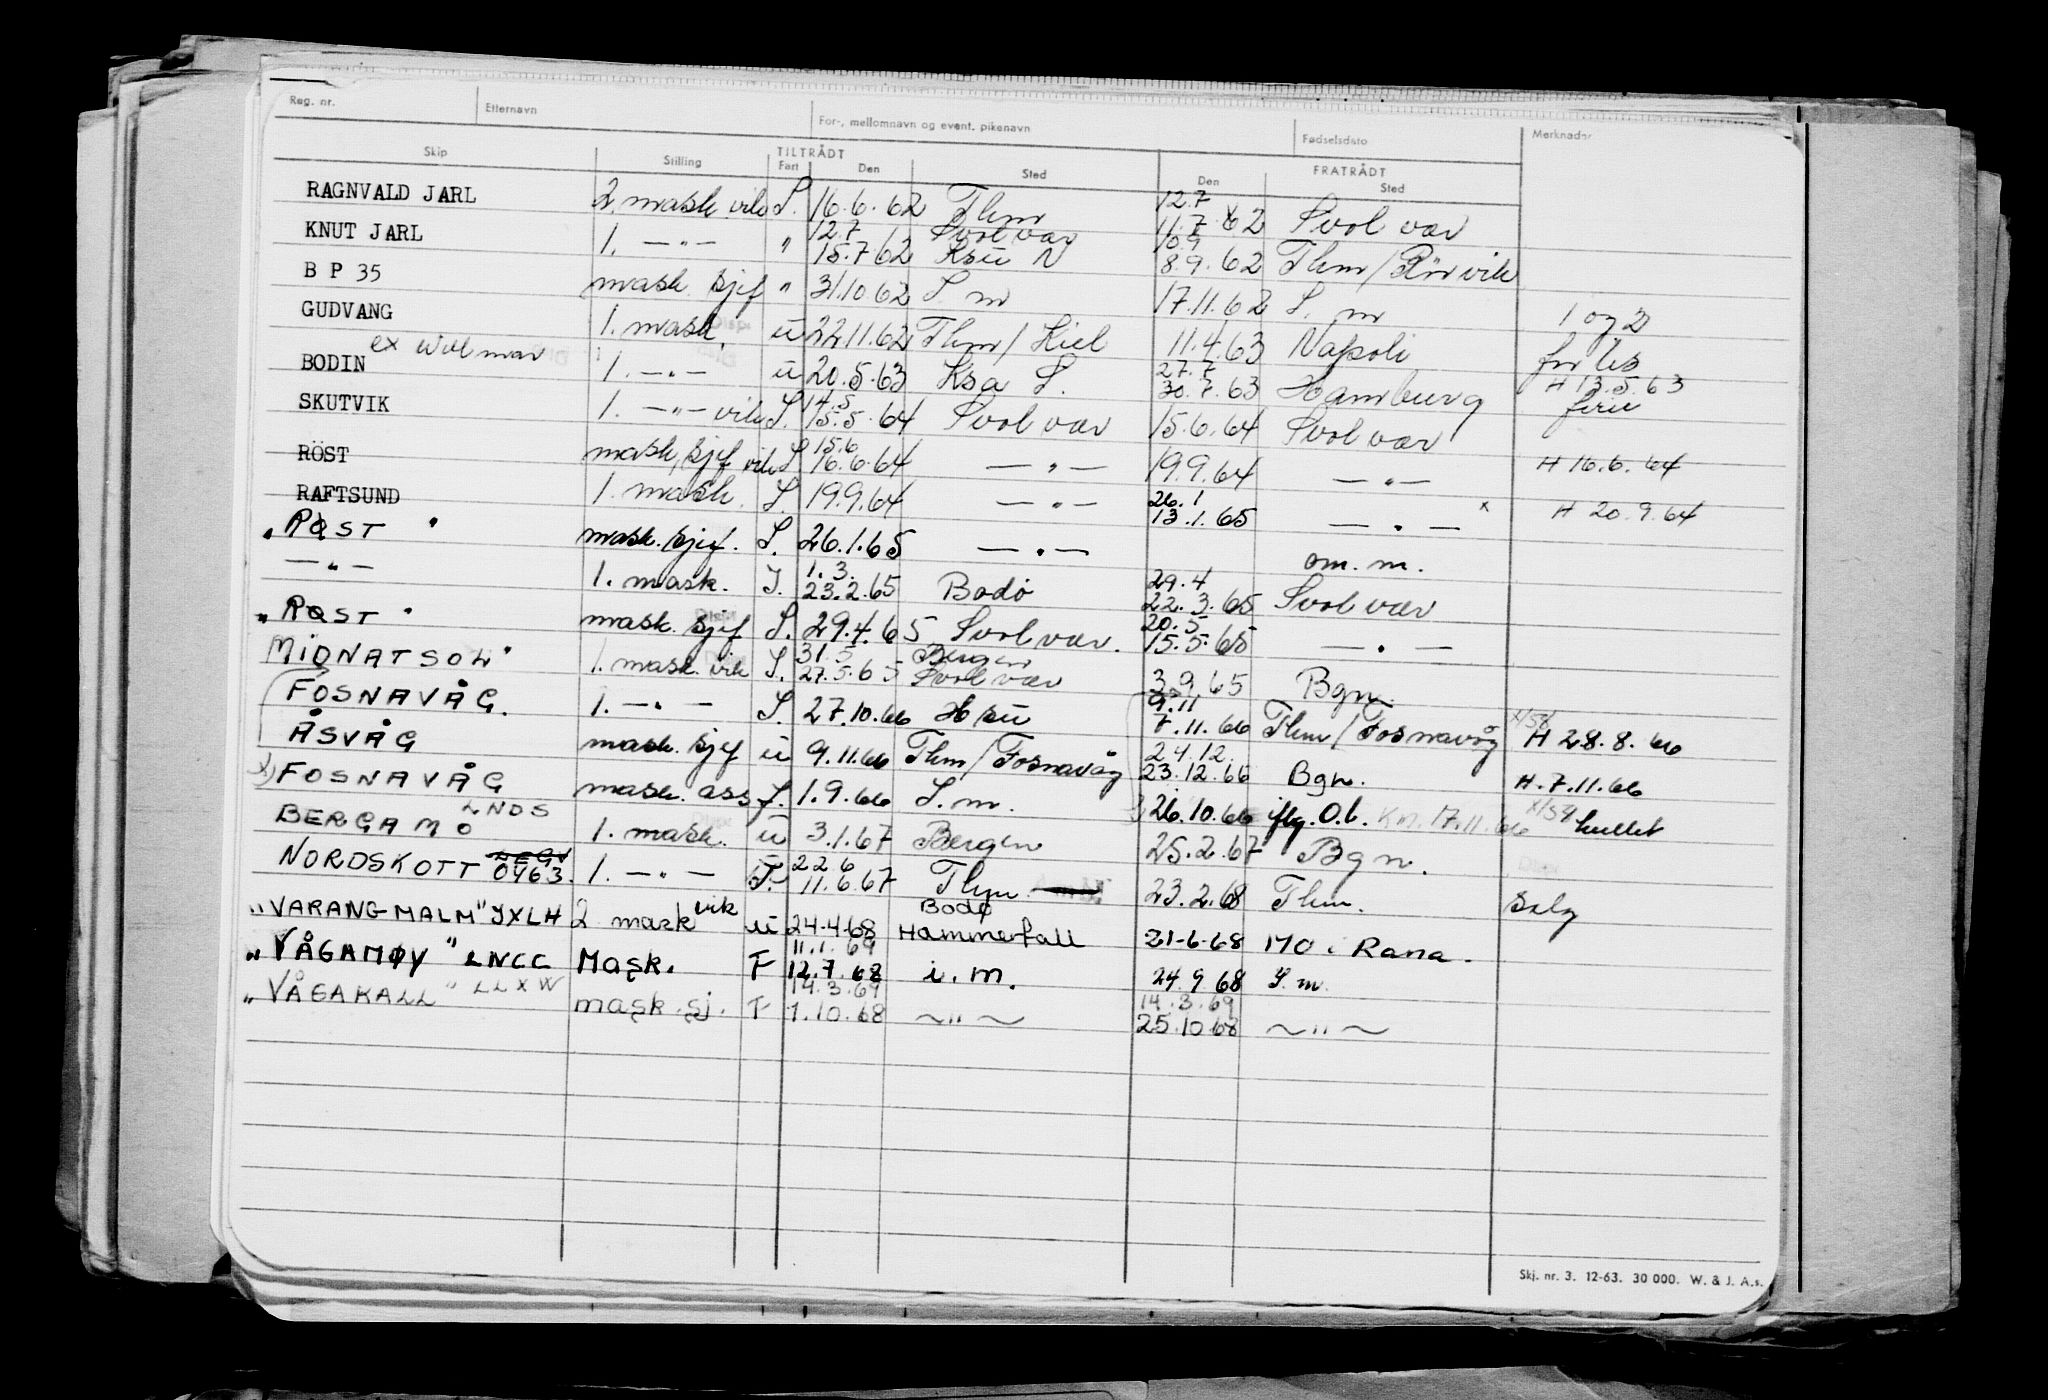 Reg. nr. Etternavn For-, mellomnavn og event. pikenavn Fødselsdato Merknader
TILTRÅDT FRATRÅDT
Skip Stilling Fart Den Sted Den Sted
12.7
RAGNVALD JARL 2. mask vik S. 16.6.62 Thm 11.7.62 Svolvær
12.7 Svolvær 10.9
KNUT JARL 1. —„— „ 15.7.62 Ksu N 8.9.62 Thm/Rörvik
B P 35 mask. sjef „ 31.10.62 S. m 17.11.62 S. m 1 og 2
GUDVANG 1. mask. u 22.11.62 Thm/Kiel 11.4.63 Napoli
ex Wolmar 27.7 H 13.5.63
BODIN 1. —„— u 20.5.63 Ksa S. 30.7.63 Hamburg ferie
14.5
SKUTVIK 1. —„— vik S. 15.5.64 Svolvær 15.6.64 Svolvær
15.6
RÖST mask. sjef vik S 16.6.64 —„— 19.9.64 —„— H 16.6.64
26.1
RAFTSUND 1. mask. S. 19.9.64 —„— 13.1.65 —„— x H 20.9.64
„RØST" mask. sjef. S. 26.1.65 —„— om. m.
1.3. 29.4
—„— 1. mask. S. 23.2.65 Bodö 22.3.65 Svolvær
20.5
„RØST" mask. sjef S. 29.4.65 Svolvær. 15.5.65 —„—
31.5 Bergen
MIDNATSOL" 1. mask. vik S. 27.5.65 Svolvær 3.9.65 Bgn.
9.11
FOSNAVÅG. 1. —„— S. 27.10.66 Hsu 7.11.66 Thm/Fosnavåg H 28.8.66
24.12.
ÅSVÅG mask. sjef u 9.11.66 Thm/Fosnavåg 23.12.66 Bgn. H. 7.11.66
x) FOSNAVÅG mask. ass S. 1.9.66 S. m. 26.10.66 iflg. O.b. Kn. 17.11.66 hullet
LNDS
BERGAMO 1. mask. u 3.1.67 Bergen 25.2.67 Bgn.
LEGV 22.6
NORDSKOTT 0463. 1. —„— F. 11.6.67 Thm. 23.2.68 Thm. Salg
vik Bodø
„VARANGMALM" JXLH 2 mask u 24-4-68 Hammerfall 21-6-68 MO i Rana.
11.1.69
„VÅGAMØY" LNCC Mask. F 12.7.68 i. m. 24.9.68 S. m.
14.3.69 14.3.69
„VÅGAKALL" LLXW mask. sj. F 1.10.68 ~„~ 25.10.68 ~„~
Skj. nr. 3. 12-63. 30 000. W. & J. A.s.